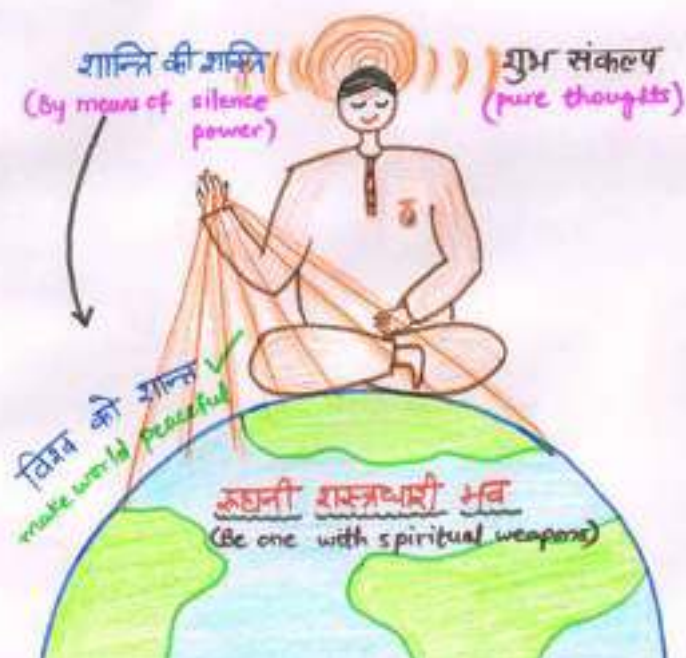 शान्ति की शक्ति
(By means of silence
power)
शुभ संकल्प
(pure thoughts)
विश्व को शान्त
make world peaceful
रूहानी शस्त्रधारी भव
(Be one with spiritual weapons)